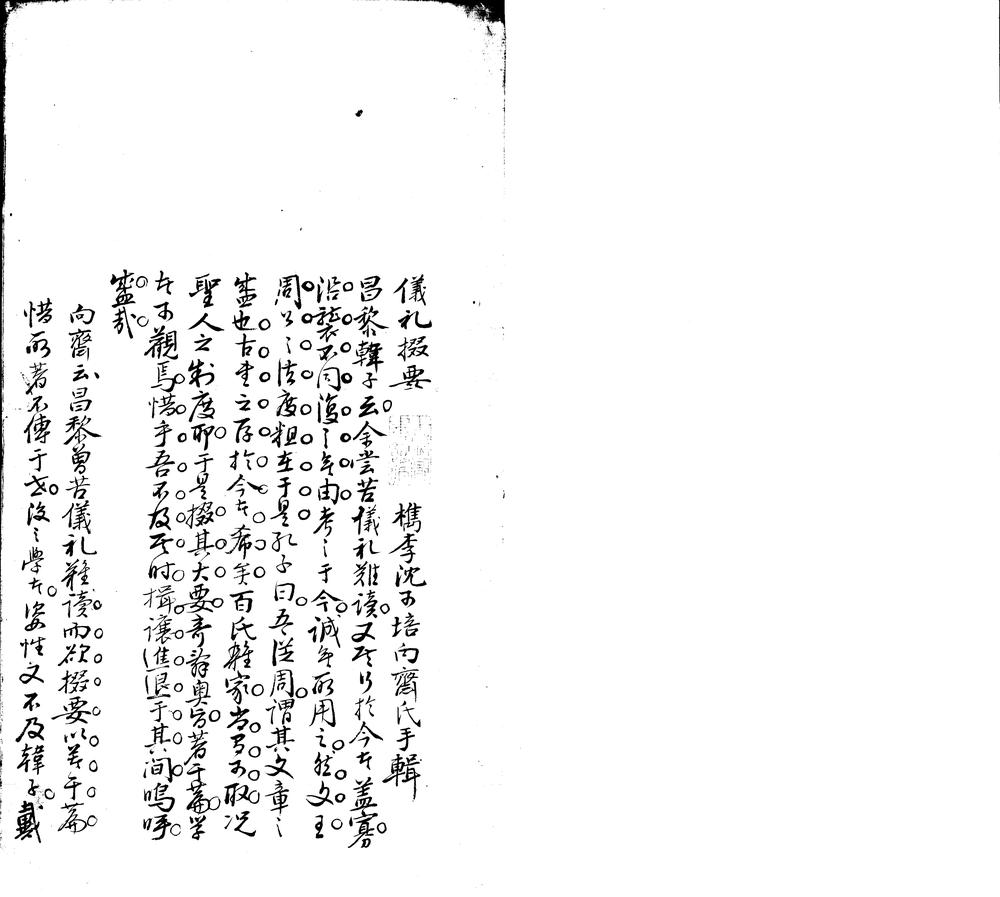 儀礼掇要 檇李沈可培向齋氏手輯
昌黎韓子云余嘗苦儀礼難讀又其行於今者蓋寡
沿襲不同復之無由考之于今誠無所用之然文王
周公之法度粗在于是孔子曰吾從周謂其文章之
盛也古書之存於今者希矣百氏雜家尚有可取况
聖人之制度耶于是掇其大要奇辞奥旨著于篇学
者可觀焉惜乎吾不及其时揖讓進退于其间嗚呼
盛哉
向齋云昌黎曾苦儀礼難讀而欲掇要以著于篇
惜所著不傳于世後之學者姿性又不及韓子戴